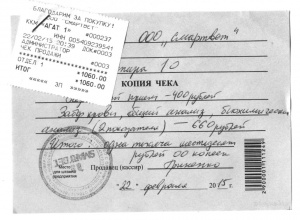 БЛАГОДАРИМ ЗА ПОКУПКУ!
ККМ "АГАТ 1" #000237
ИНН 005469239541
22/02/15 20:39 ДОК #0003
АДМИНИСТРАТОР
ЧЕК ПРОДАЖИ #0003
ОТДЕЛ 1 =1060.00
ИТОГ =1060.00
ЗП
ООО „Смартвет"
10
КОПИЯ ЧЕКА
прием -400 рублей
Забор крови, общий анализ, биохимический
анализ (2 показателя) – 660 рублей
Итого: одна тысяча шестьдесят
рублей 00 копеек
Продавец (кассир) Гриненко
„22" февраля 2015г.